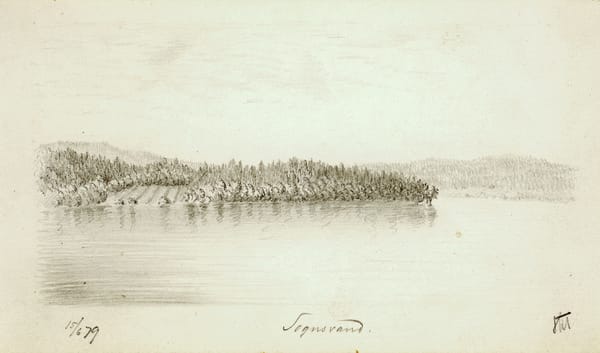 15/6 79 Sognsvand.